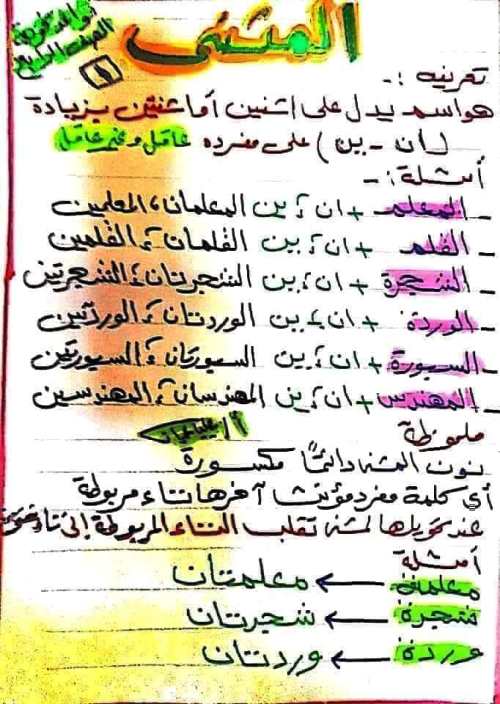 قواعد نحوية
الصف الرابع
١
المثنى
تعريفه :-
هو اسم يدل على اثنين أو اثنتين بزيادة
(ان - ين) على مفرده عاقل وغير عاقل
أمثلة :-
- المعلم + ان ، ين المعلمان ، المعلمين
- القلم + ان ، ين القلمان ، القلمين
- الشجرة + ان ، ين الشجرتان ، الشجرتين
- الوردة + ان ، ين الوردتان ، الوردتين
- السبورة + ان ، ين السبورتان ، السبورتين
- المهندس + ان ، ين المهندسان ، المهندسين
ملحوظة
نون المثنى دائمًا مكسورة
أي كلمة مفرد مؤنث آخرها تاء مربوطة
عند تحويلها لمثنى تقلب التاء المربوطة إلى تاء مفتوحة
أمثلة
معلمة ← معلمتان
شجرة ← شجرتان
وردة ← وردتان